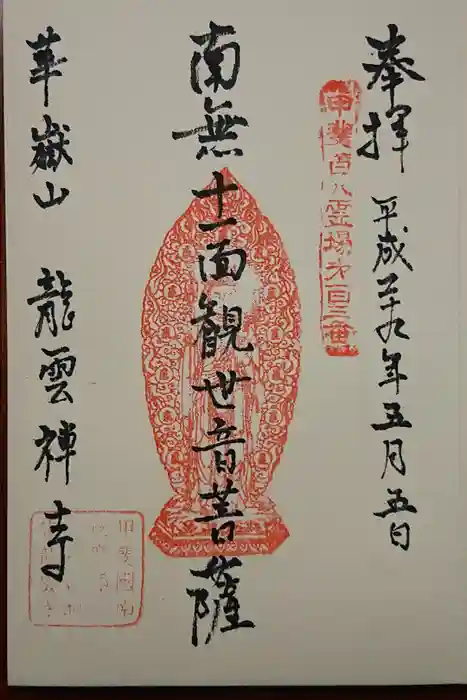 奉拝 平成二十九年五月五日
甲斐百八霊場第百三番
南無十一面観世音菩薩
華嶽山 龍雲禅寺